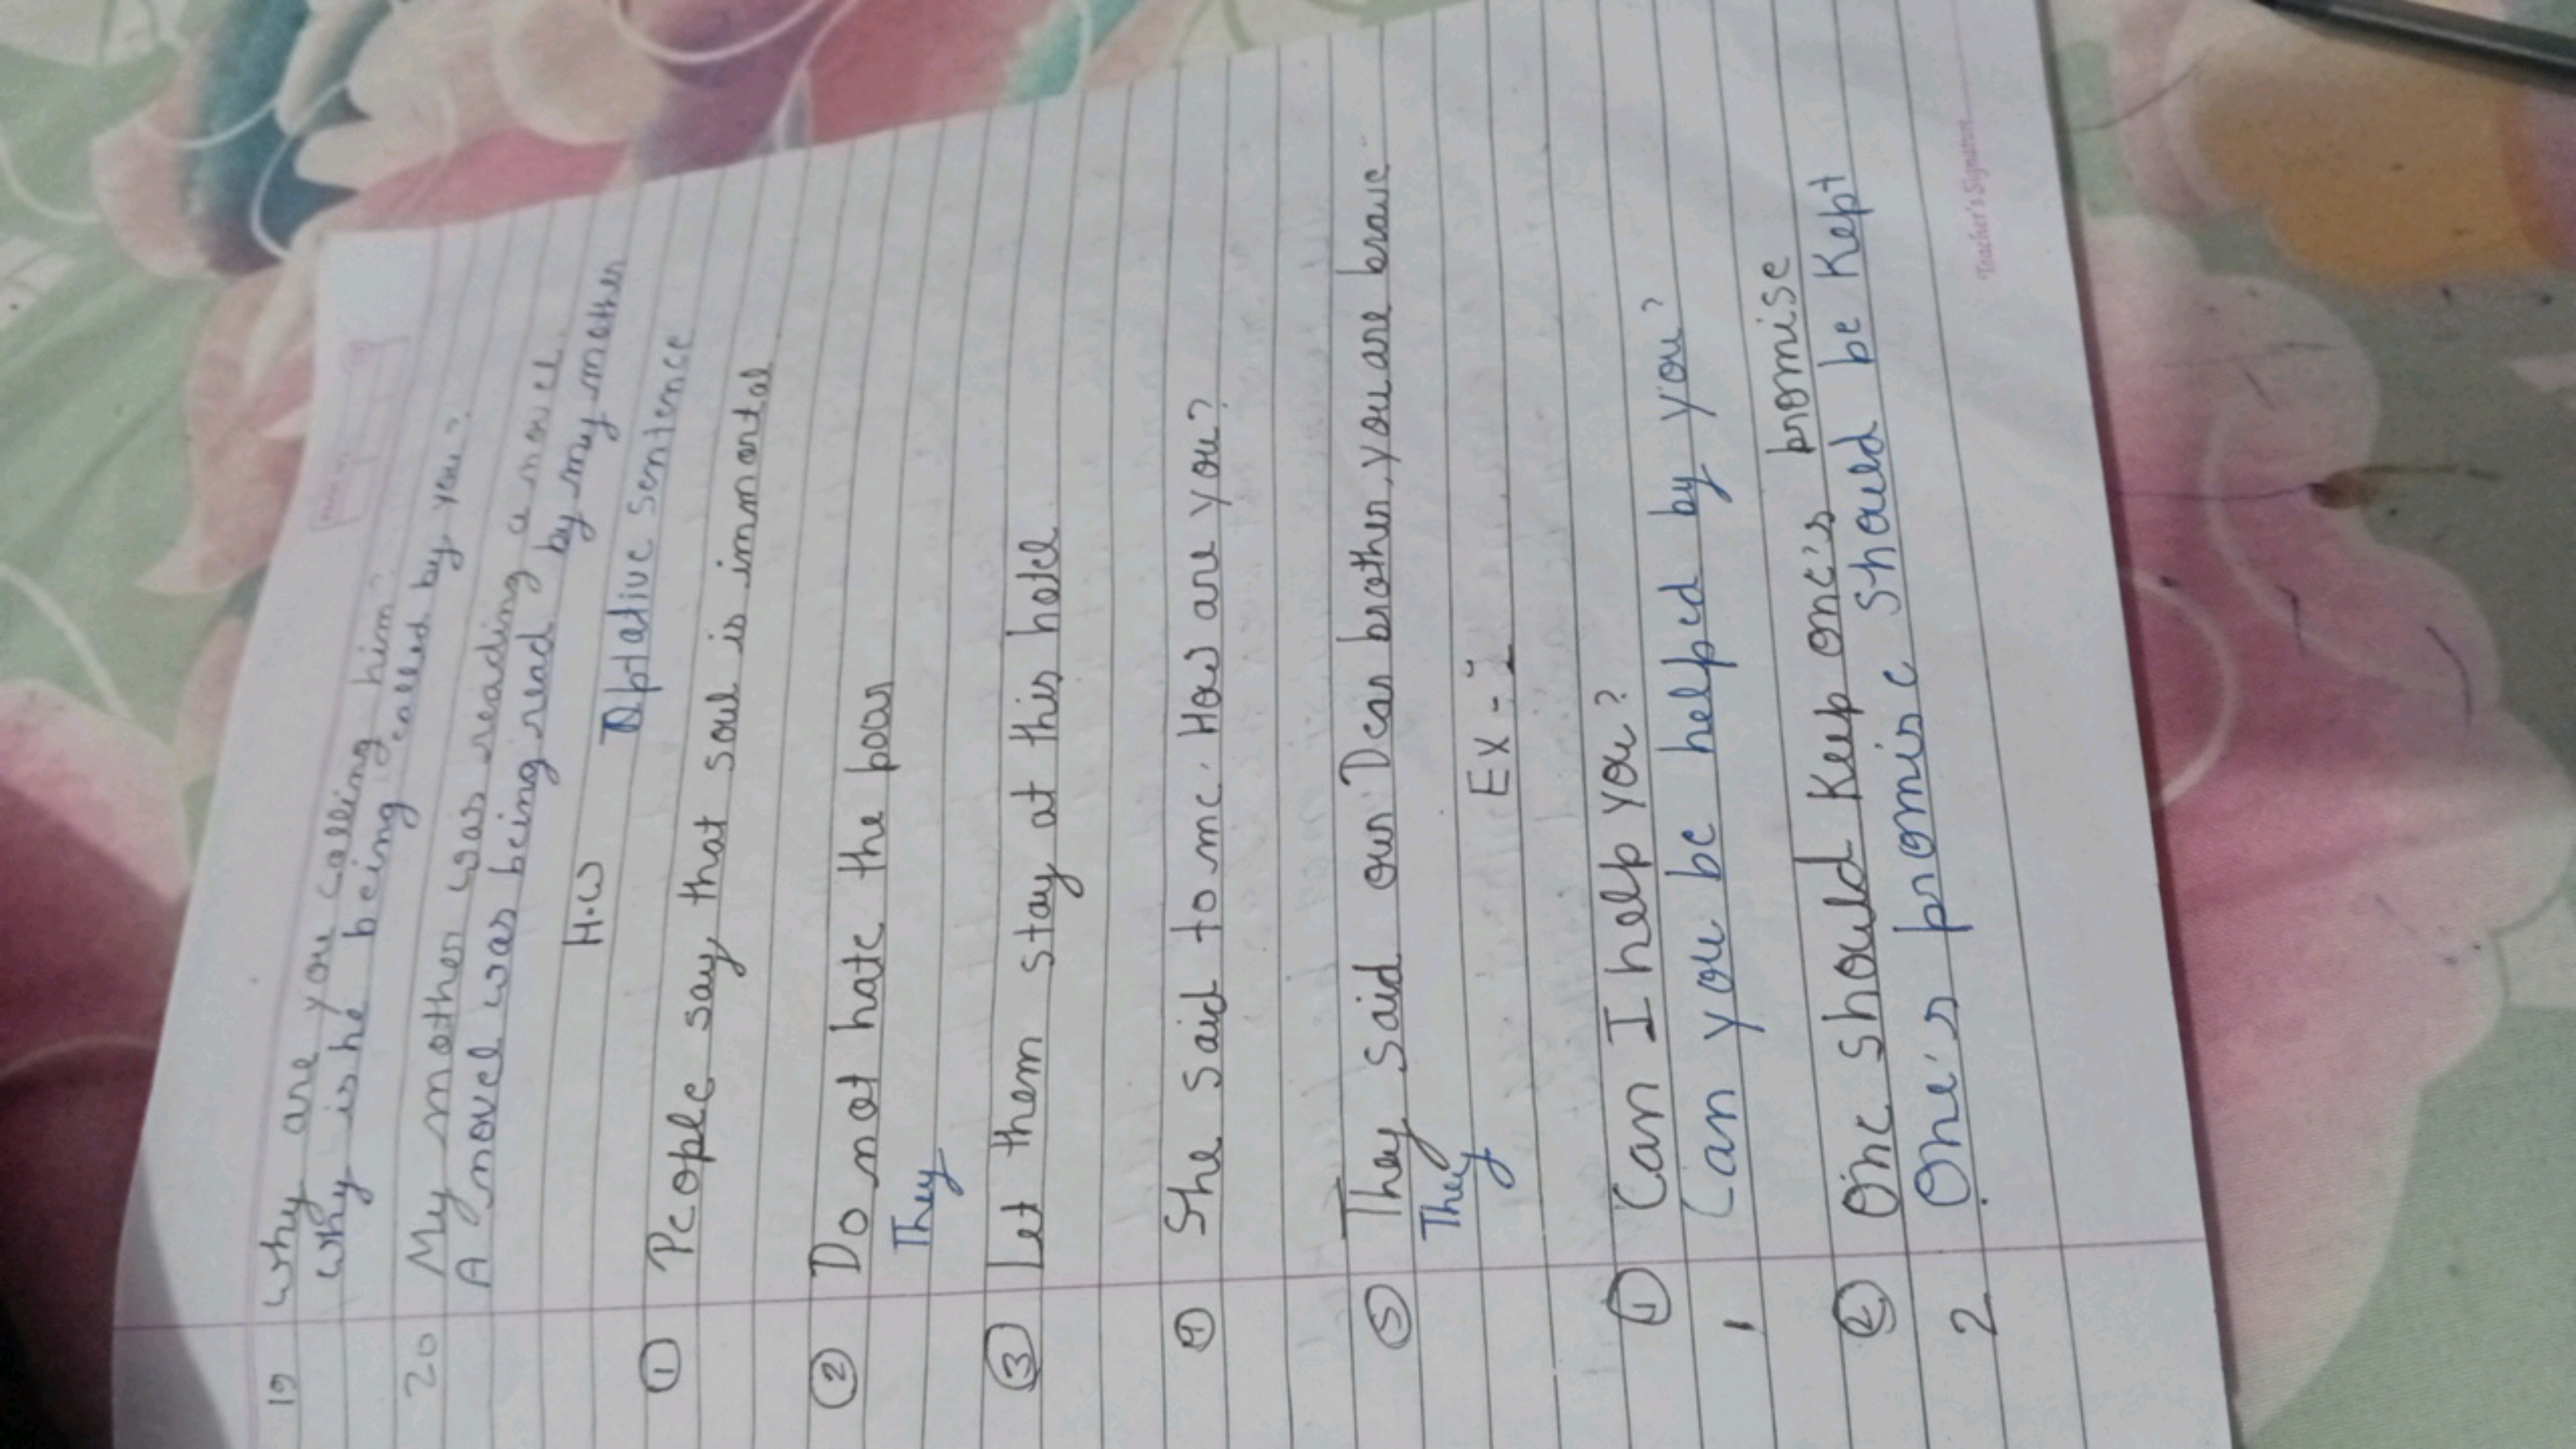 19 Why are you calling him?
Why is he being called by you?
20 My mother was reading a novel.
A novel was being read by my mother
H.W
Optative sentence
① People say that soul is immortal
② Do not hate the poor
They
③ Let them stay at this hotel
④ She said to me. How are you?
⑤ They said our Dear brother, you are brave
They
Ex-:
① Can I help you?
1 Can you be helped by you?
② One should Keep one's promise
2 One's promise should be Kept
Teacher's Signature